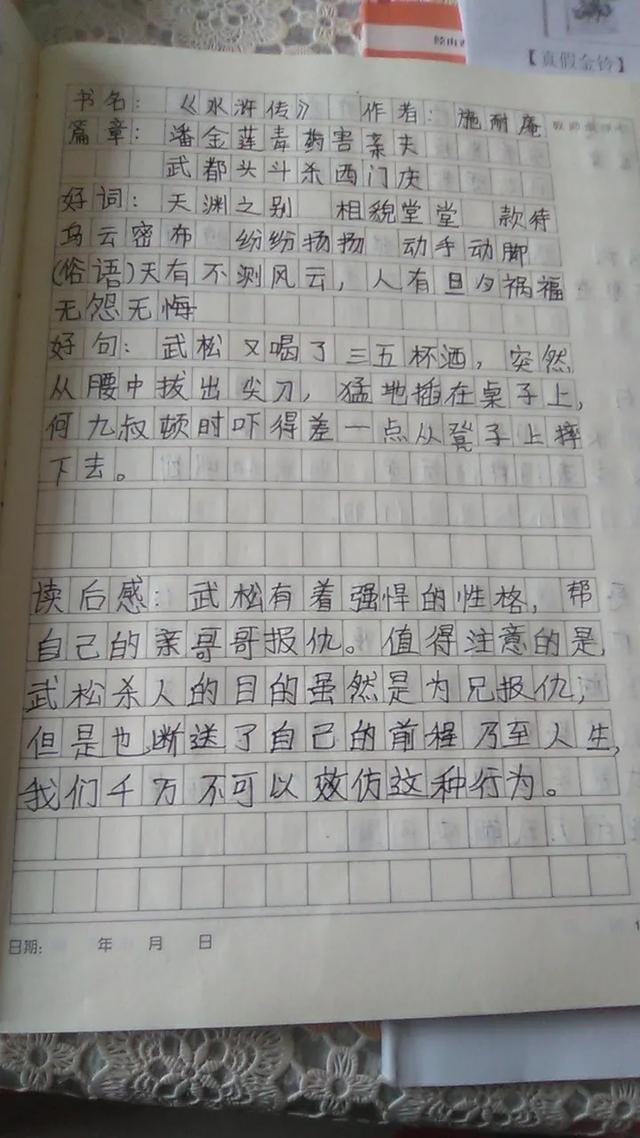 【真假金铃】
书名：《水浒传》 作者：施耐庵
篇章：潘金莲毒药害亲夫
武都头斗杀西门庆
好词：天渊之别 相貌堂堂 款待
乌云密布 纷纷扬扬 动手动脚
(俗语)天有不测风云，人有旦夕祸福
无怨无悔
好句：武松又喝了三五杯酒，突然
从腰中拔出尖刀，猛地插在桌子上，
何九叔顿时吓得差一点从凳子上摔
下去。
读后感：武松有着强悍的性格，帮
自己的亲哥哥报仇。值得注意的是，
武松杀人的目的虽然是为兄报仇，
但是也断送了自己的前程乃至人生，
我们千万不可以效仿这种行为。
日期： 年 月 日
1